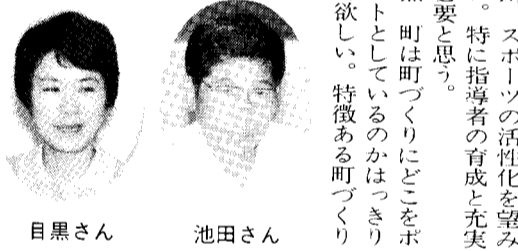 スポーツの活性化を望み
。特に指導者の育成と充実
要と思う。
町は町づくりにどこをポ
トとしているのかはっきり
欲しい。特徴ある町づくり
目黒さん
池田さん